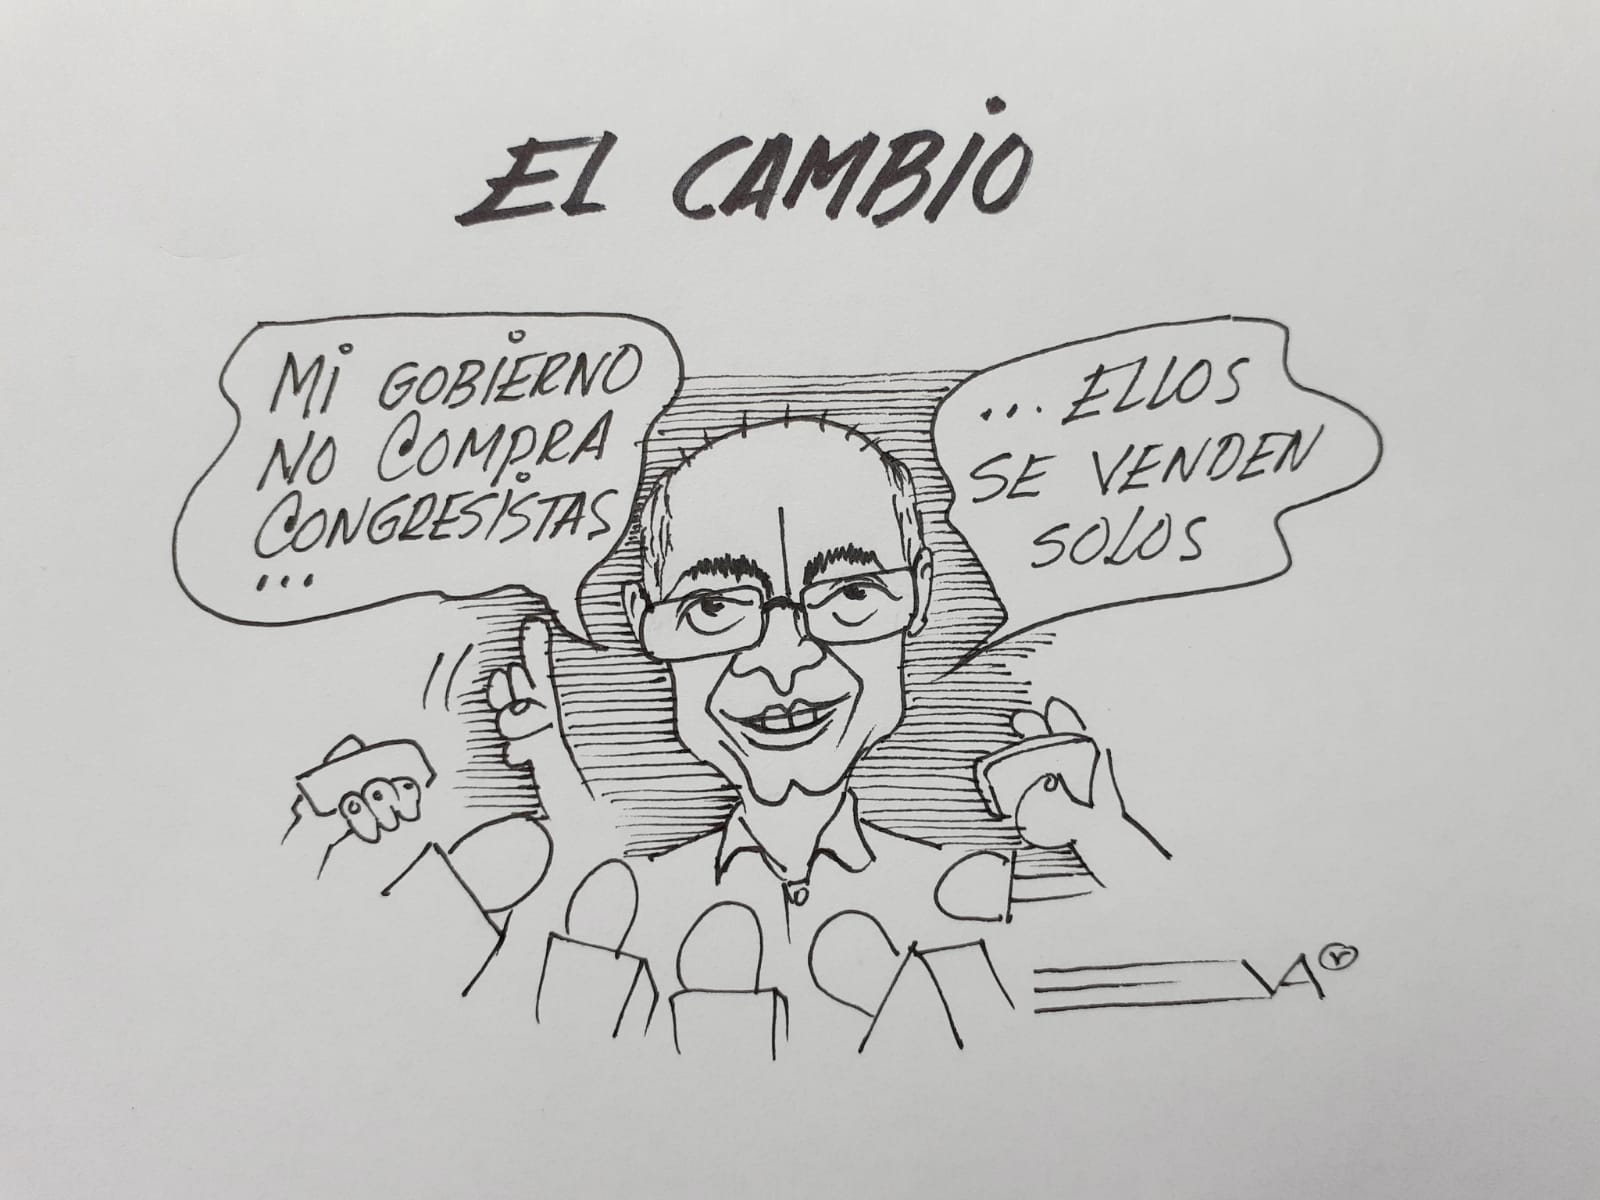 EL CAMBIO
MI GOBIERNO
NO COMPRA
CONGRESISTAS
...
... ELLOS
SE VENDEN
SOLOS